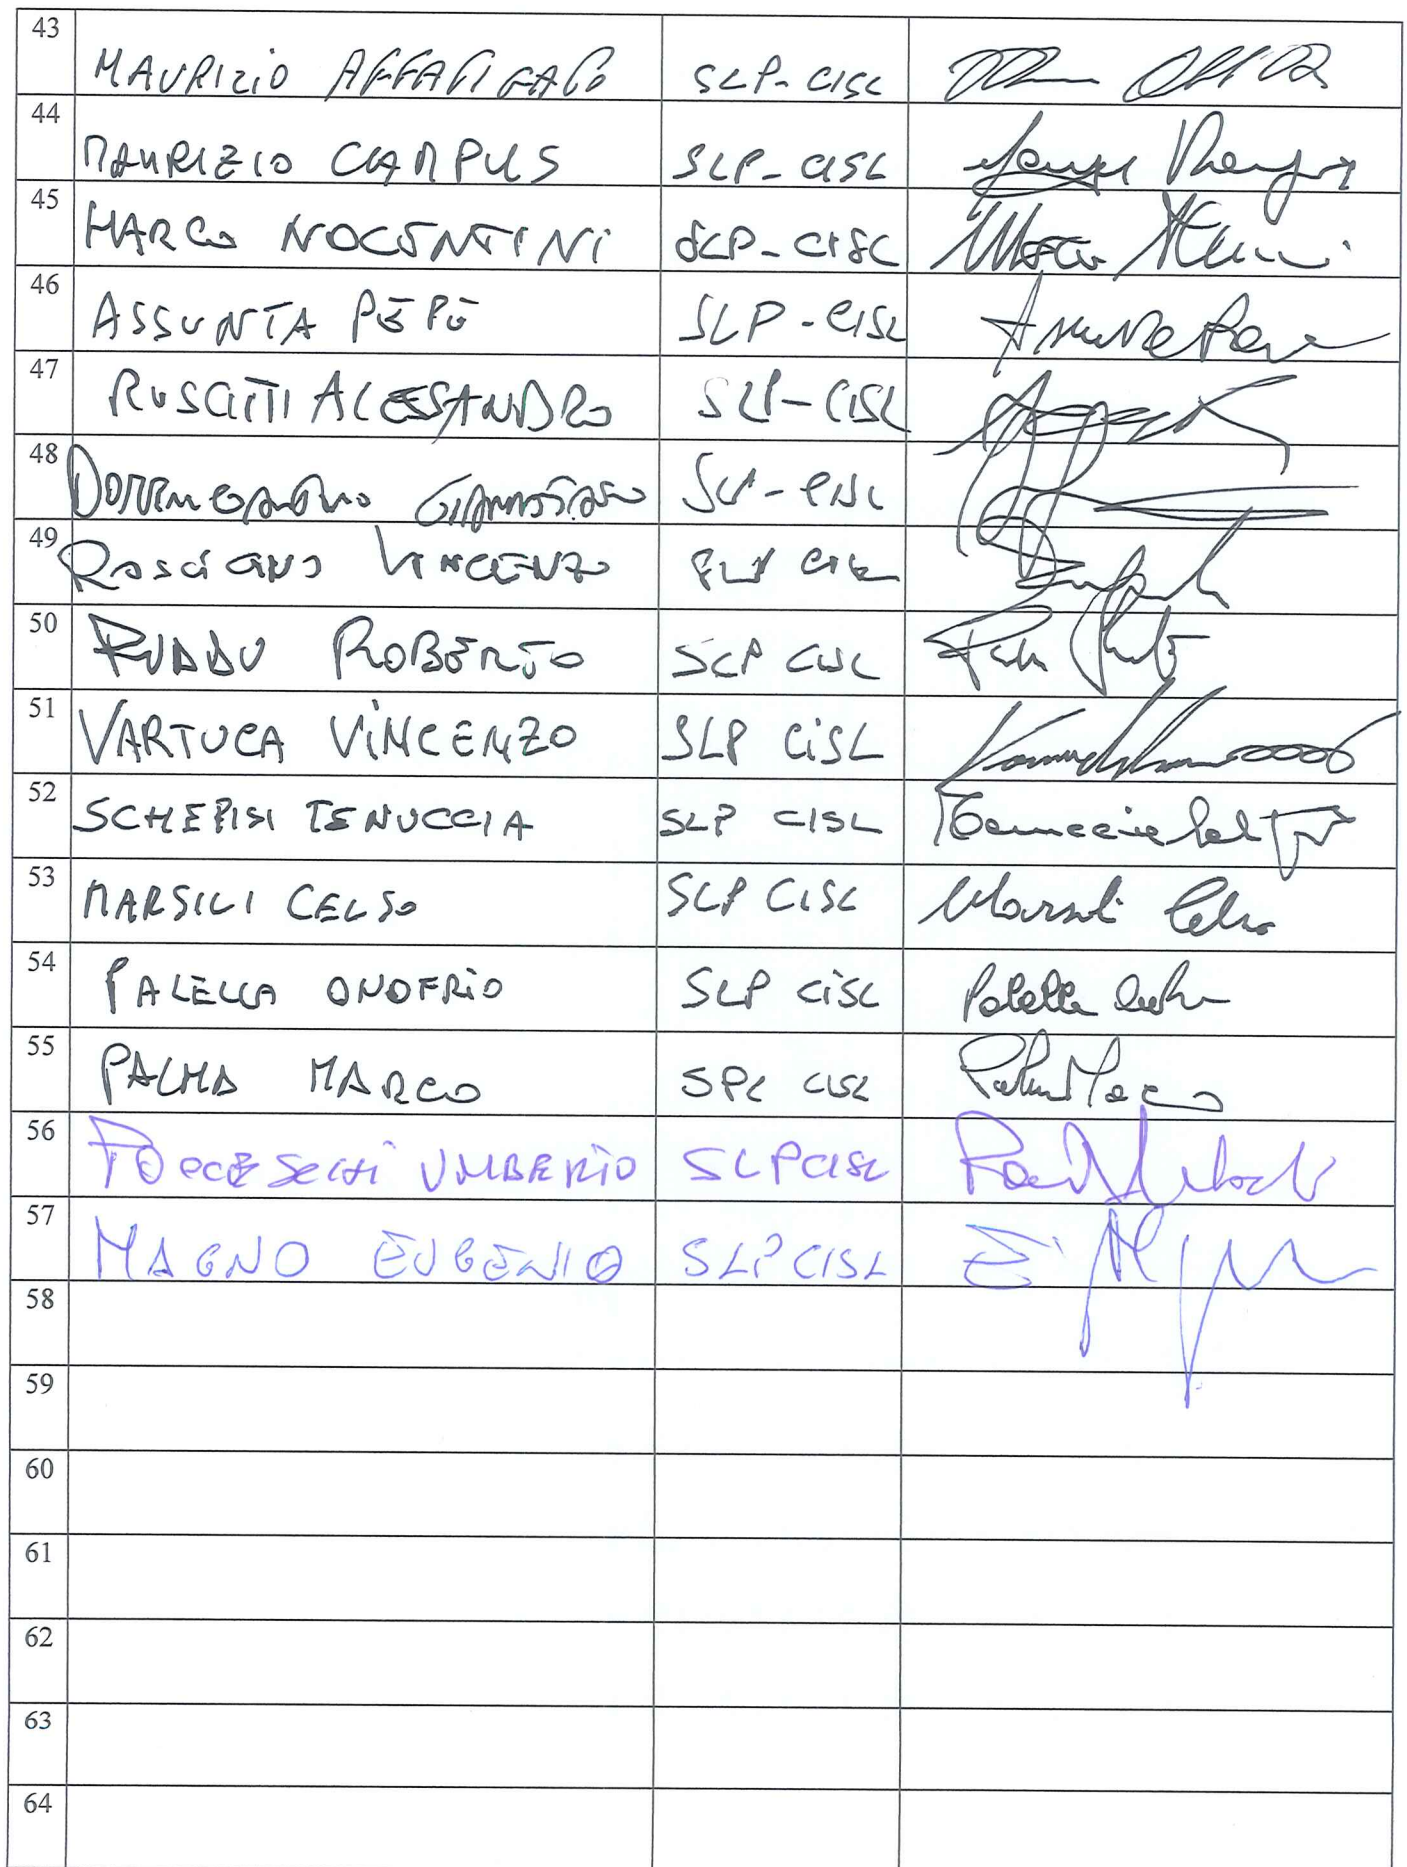 43 MAURIZIO AFFATIGATO SLP-CISL
44 MAURIZIO CAMPUS SLP-CISL
45 MARCO NOCENTINI SLP-CISL
46 ASSUNTA PEPE SLP-CISL Assunta Pepe
47 RUSCITTI ALESSANDRO SLP-CISL
48 SLP-CISL
49 ROSCIANO VINCENZO SLP CISL
50 RUDDU ROBERTO SLP CISL
51 VARTUCA VINCENZO SLP CISL
52 SCHEPISI TENUCCIA SLP CISL Tenuccia
53 MARSILI CELSO SLP CISL Marsili Celso
54 PALELLA ONOFRIO SLP CISL Palella
55 PALMA MARCO SPL CISL Palma Marco
56 UMBERTO SLP CISL
57 MAGNO EUGENIO SLP CISL
58
59
60
61
62
63
64